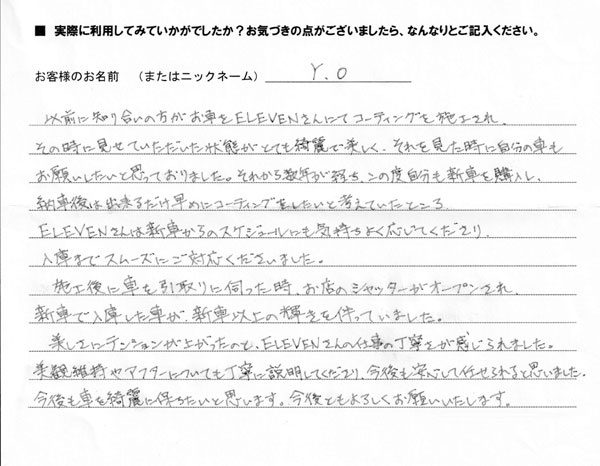 ■ 実際に利用してみていかがでしたか？お気づきの点がございましたら、なんなりとご記入ください。
お客様のお名前　（またはニックネーム）　Y.O
以前に知り合いの方がお車をELEVENさんにてコーティングを施工され、
その時に見せていただいた状態がとても綺麗で美しく、それを見た時に自分の車も
お願いしたいと思っておりました。それから数年が経ち、この度自分も新車を購入し、
納車後は出来るだけ早めにコーティングをしたいと考えていたところ、
ELEVENさんは新車からのスケジュールにも気持ちよく応じてくださり、
入庫までスムーズにご対応くださいました。
施工後に車を引取りに伺った時、お店のシャッターがオープンされ、
新車で入庫した車が、新車以上の輝きを伴っていました。
美しさにテンションが上がったのと、ELEVENさんの仕事の丁寧さが感じられました。
美観維持やアフターについても丁寧に説明してくださり、今後も安心して任せられると思いました。
今後も車を綺麗に保ちたいと思います。今後ともよろしくお願いいたします。